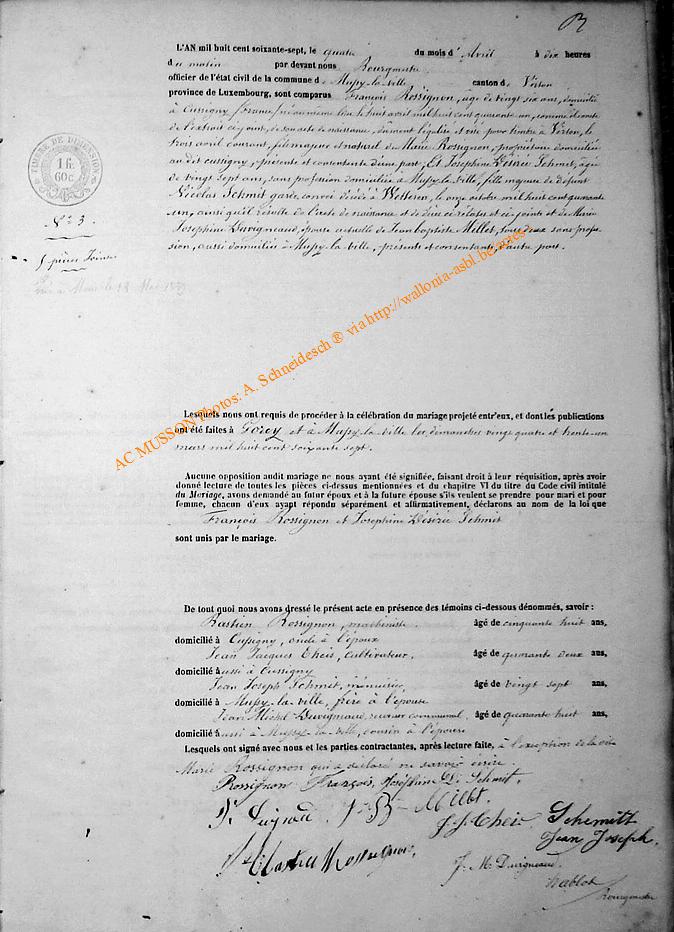 L'AN mil huit cent soixante-sept, le quatre du mois d'Avril à dix heures
du matin par devant nous Bourgmestre
officier de l'état civil de la commune de Mussy-la-ville canton de Virton
province de Luxembourg, sont comparus François Rossignon, âgé de vingt six ans, domicilié
à Cussigny (france) né au même lieu le huit avril mil huit cent quarante un, comme il conste
de l'extrait ci joint, de son acte de naissance, dûment légalisé et visé pour timbre à Virton, le
trois avril courant, fils majeur et naturel de Marie Rossignon, propriétaire domiciliée
au dit cussigny, présente et consentante d'une part; Et Josephine Désirée Schmit, âgée
de vingt sept ans, sans profession domiciliée à Mussy-la-ville, fille majeure de défunt
Nicolas Schmit garde convoi décédé à Wetteren, le onze octobre mil huit cent quarante
un, ainsi qu'il résulte de l'acte de naissance et de décès ci-joints et de Marie
Josephine Duvigneaud, épouse actuelle de Jean baptiste Millet, tous deux sans profes
sion, aussi domiciliés à Mussy-la-ville, présents et consentants, d'autre part.
TIMBRE DE DIMENSION
16
60 C.
N° 3
5 pièces Jointes
Lesquels nous ont requis de procéder à la célébration du mariage projeté entr'eux, et dont les publications
ont été faites à Gorcy et à Mussy-la-ville les dimanches vingt quatre et trente-un
mars mil huit cent soixante sept.
Aucune opposition audit mariage ne nous ayant été signifiée, faisant droit à leur réquisition, après avoir
donné lecture de toutes les pièces ci-dessus mentionnées et du chapitre VI du titre du Code civil intitulé
du Mariage, avons demandé au futur époux et à la future épouse s'ils veulent se prendre pour mari et pour
femme, chacun d'eux ayant répondu séparément et affirmativement, déclarons au nom de la loi que
François Rossignon et Josephine Désirée Schmit
sont unis par le mariage.
De tout quoi nous avons dressé le présent acte en présence des témoins ci-dessous dénommés, savoir :
Bastien Rossignon, machiniste. âgé de cinquante huit ans,
domicilié à Cussigny, oncle à l'époux
Jean Jacques Theis, cultivateur, âgé de quarante deux ans,
domicilié aussi à Cussigny
Jean Joseph Schmit, menuisier, âgé de vingt sept ans,
domicilié à Mussy-la-ville, frère à l'épouse
Jean Michel Duvigneaud, receveur communal, âgé de quarante huit ans,
domicilié aussi à Mussy-la-ville, cousin à l'épouse
Lesquels ont signé avec nous et les parties contractantes, après lecture faite, à l'exception de la dite
Marie Rossignon qui a déclaré ne savoir écrire.
Rossignon François, Joséphine D. Schmit.
J-B- Millet.
J J Theis Schemitt
Jean Joseph.
Rossignon
J. M. Duvigneaud.
Bourgmestre
AC MUSSON Photos: A. Schneidesch ® via http://wallonia-asbl.be/actes